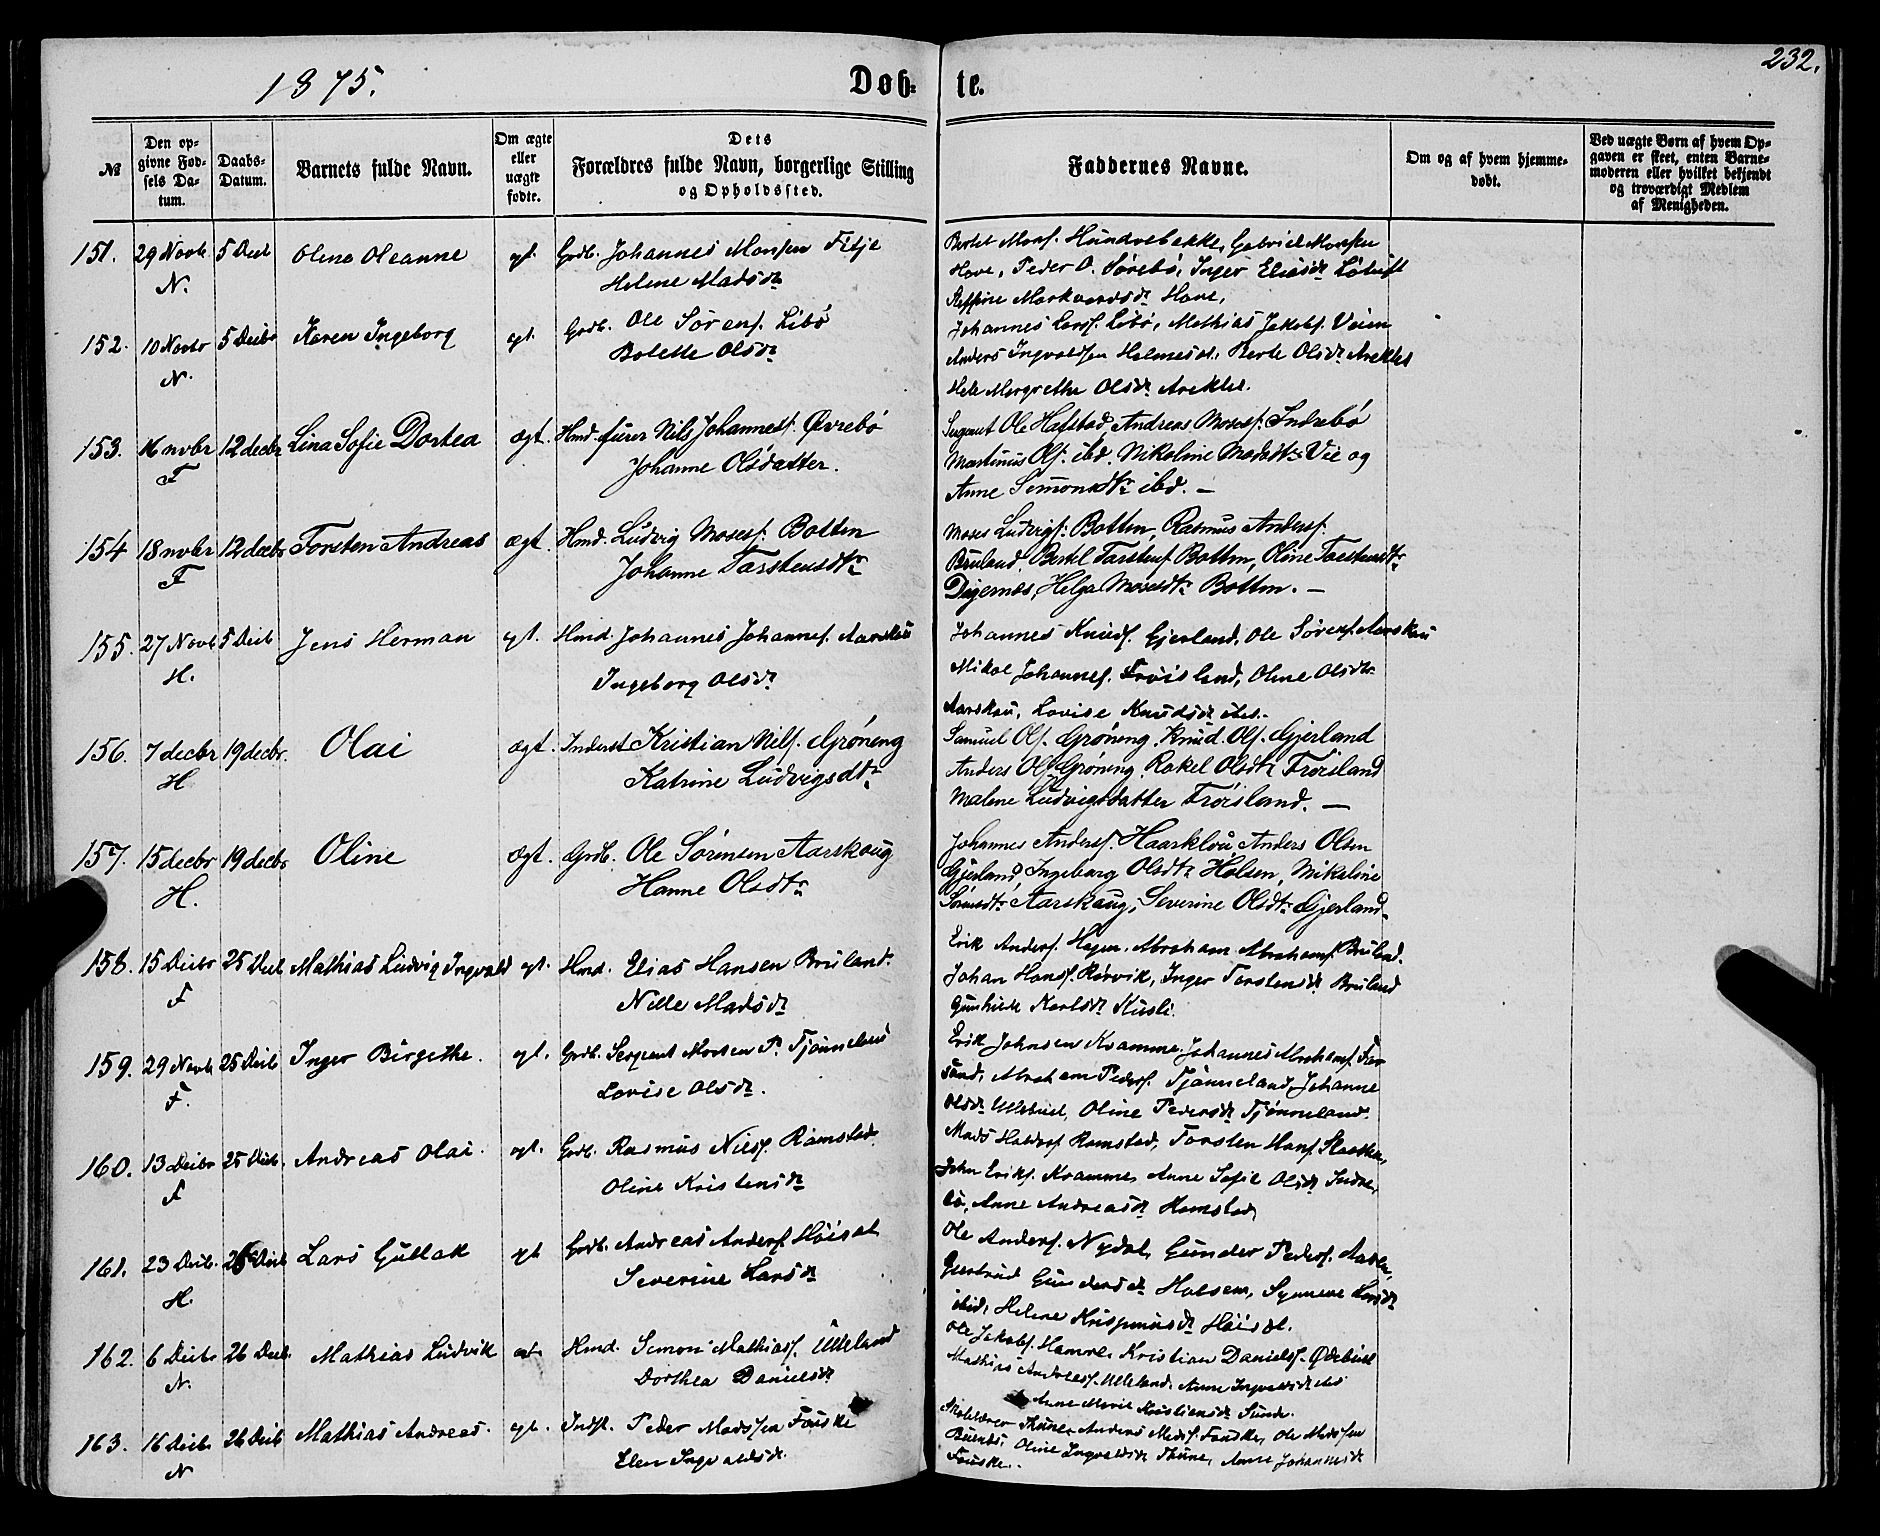 232.
1875.
Døb-te.
№
Den opgivne Fødsels Datum.
Daabs-Datum.
Barnets fulde Navn.
Om ægte eller uægte fødte.
Dets Forældres fulde Navn, borgerlige Stilling og Opholdssted.
Faddernes Navne.
Om og af hvem hjemmedøbt.
Ved uægte Børn af hvem Opgaven er skeet, enten Barnemoderen eller hvilket bekjendt og troværdigt Medlem af Menigheden.
151. 29 Novb 5 Decb Olena Oleanne egt. Grdb. Johannes Monsen Fitje
N. Helene Madsdr
Bertel Monss. Hundvebakke, Gabriel Monsen
Hove, Peder O. Sørebø, Inger Eliasdr
Markvardsdr Hove,
152. 10 Novbr 5 Decbr Karen Ingeborg egt. Grdb. Ole Sørens. Libø
N. Bolette Olsdr
Johannes Larss. Libø, Mathias Jakobs. Veien
Anders Ingvaldsen Berte Olsdr Areklet
Margrethe Olsdr Areklet.
153. 16 novbr 12 decbr Lina Sofie Dortea ægt. Hmd. furer Nils Johanness. Øvrebø
F Johanne Olsdatter.
Sergeant Ole Hafstad Andreas Moses. Indrebø
Martinus Ols. ibd. Nikoline Madsdtr Vie og
Anne Simonsdtr ibd. —
154 18 novbr 12 decbr Torsten Andreas ægt. Hmd. Ludvig Moses. Botten
F Johanne Torstensdtr
Moses Ludvigs. Botten, Rasmus Anders.
Bruland, Bertel Torstens. Botten, Oline Torstensdtr
Digernæs, Helga Mosesdtr Botten. —
155. 27 Novb 5 Decb Jens Herman egt. Hmd. Johannes Johannes. Aarskau
H. Ingeborg Olsdr
Johannes Knuds. Gjerland, Ole Sørens. Aarskau
Mikal Johannes. Frøisland, Oline Olsdtr
Aarskau, Lovise Knudsdr ibd.
156. 7 decbr 19 decbr. Olai ægt. Inderst Kristian Nils. Grøneng
H Katrine Ludvigsdtr
Samuel Ols. Grøneng, Knud Ols. Gjerland
Anders Ols. Grøneng, Rakel Olsdtr Frøisland
Malene Ludvigsdatter Frøisland. —
157. 15 decbr 19 decbr Oline ægt. Grdb. Ole Sørensen Aarskaug
H. Hanne Olsdtr
Johannes Anders. Haarklou, Anders Olsen
Gjerland, Ingeborg Olsdtr Holsen, Mikaline
Sørensdtr Aarskaug, Severine Olsdtr Gjerland
158. 15 Decbr 25 Decb Mathias Ludvig Ingvald egt. Hmd. Elias Hansen Bruland.
F Nille Madsdr
Erik Anders. Hagen, Abraham Abrahams. Bruland.
Johan Hans. Rørvik, Inger Torstensdr Bruland
Gunhilde Karlsdr Kusli.
159. 29 Novb 25 Decb Inger Birgethe. egt. Grdb. Sergeant Morten P. Tjønneland
F. Lovise Olsdr.
Erik Johnsen Kvamme, Johannes Abrahams. For
sund, Abraham Peders. Tjønneland, Johanne
Olsdr Oline Pedersdr Tjønneland.
160. 13 Decbr 25 Decb. Andreas Olai. egt. Grdb. Rasmus Nils. Ramstad.
F Oline Kristensdr
Mads Ramstad, Torsten Hans.
John Eriks. Kvamme, Anne Sofie Olsdr Indre
bø, Anne Andreasdr Ramstad
161. 23 Decb. 26 Decb Lars Gullak egt Grdb. Andreas Anders. Høisæt
H. Severine Larsdr
Ole Anders. Nydal, Gunder Peders. Aasen,
Gjertrud Gundersdr Holsen, Synneve Larsdr
ibid, Helene Høisæt.
162. 6 Decbr 26 Decb. Mathias Ludvik Hmd. Simon Mathias. Ulleland
N. Dorthea Danielsdr
Ole Jakobs. Hamre, Kristian Daniels. Ødebust
Mathias Andreas. Ulleland, Anne Ingvaldsdr ibd
Anne Marie Kristiansdr Sunde.
163. 16 Decb. 26 Decb Mathias Andreas. egt. Indst. Peder Madssen Fouske
N Elen Ingvaldsdr.
Thune, Anders Mads. Fouske, Ole Madssen
Oline Ingvaldsdr Thune, Anne Johannesdr
Fouske.